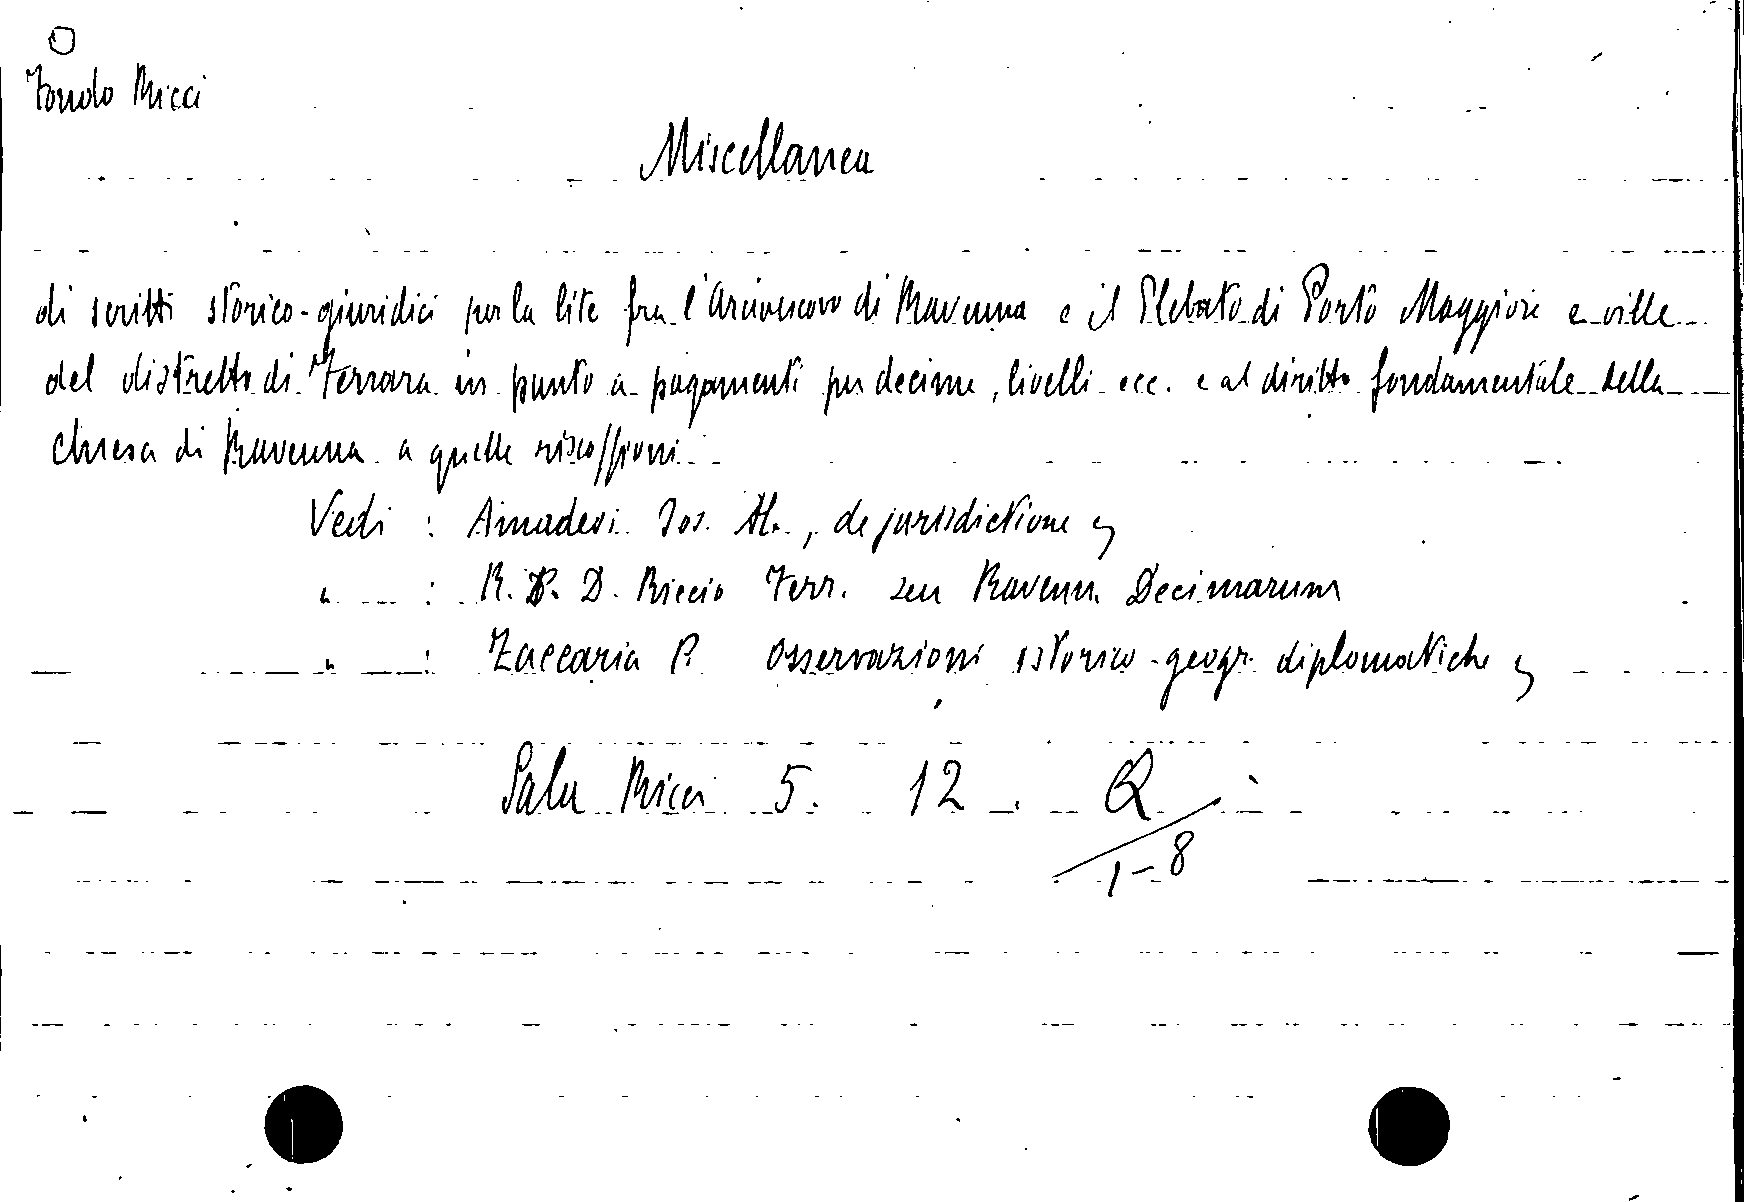 Fondo Ricci
Miscellanea
di scritti storico-giuridici per la lite fra l'Arcivescovo di Ravenna e il Plebato di Porto Maggiore e ville
del distretto di Ferrara in punto a pagamenti per decime, livelli ecc. e al diritto fondamentale della
chiesa di Ravenna a quelle riscossioni
Vedi : Amadesi Jos. Al., de jurisdictione
" : R. P. D. Riccio Ferr. seu Ravenn. Decimarum
" : Zaccaria P. Osservazioni istorico-geogr. diplomatiche
Sala Ricci 5. 12. Q
1-8